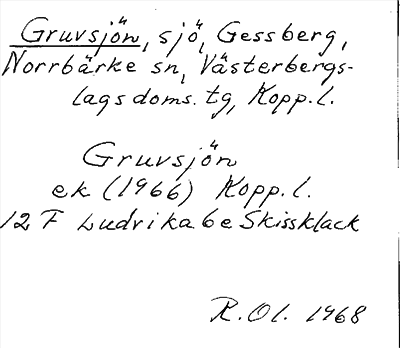 Gruvsjön, sjö, Gessberg,
Norrbärke sn, Västerbergs-
lagsdoms. tg, Kopp.l.
Gruvsjön
ek (1966) Kopp.l.
12 F Ludvika 6e Skissklack
R.Ol. 1968